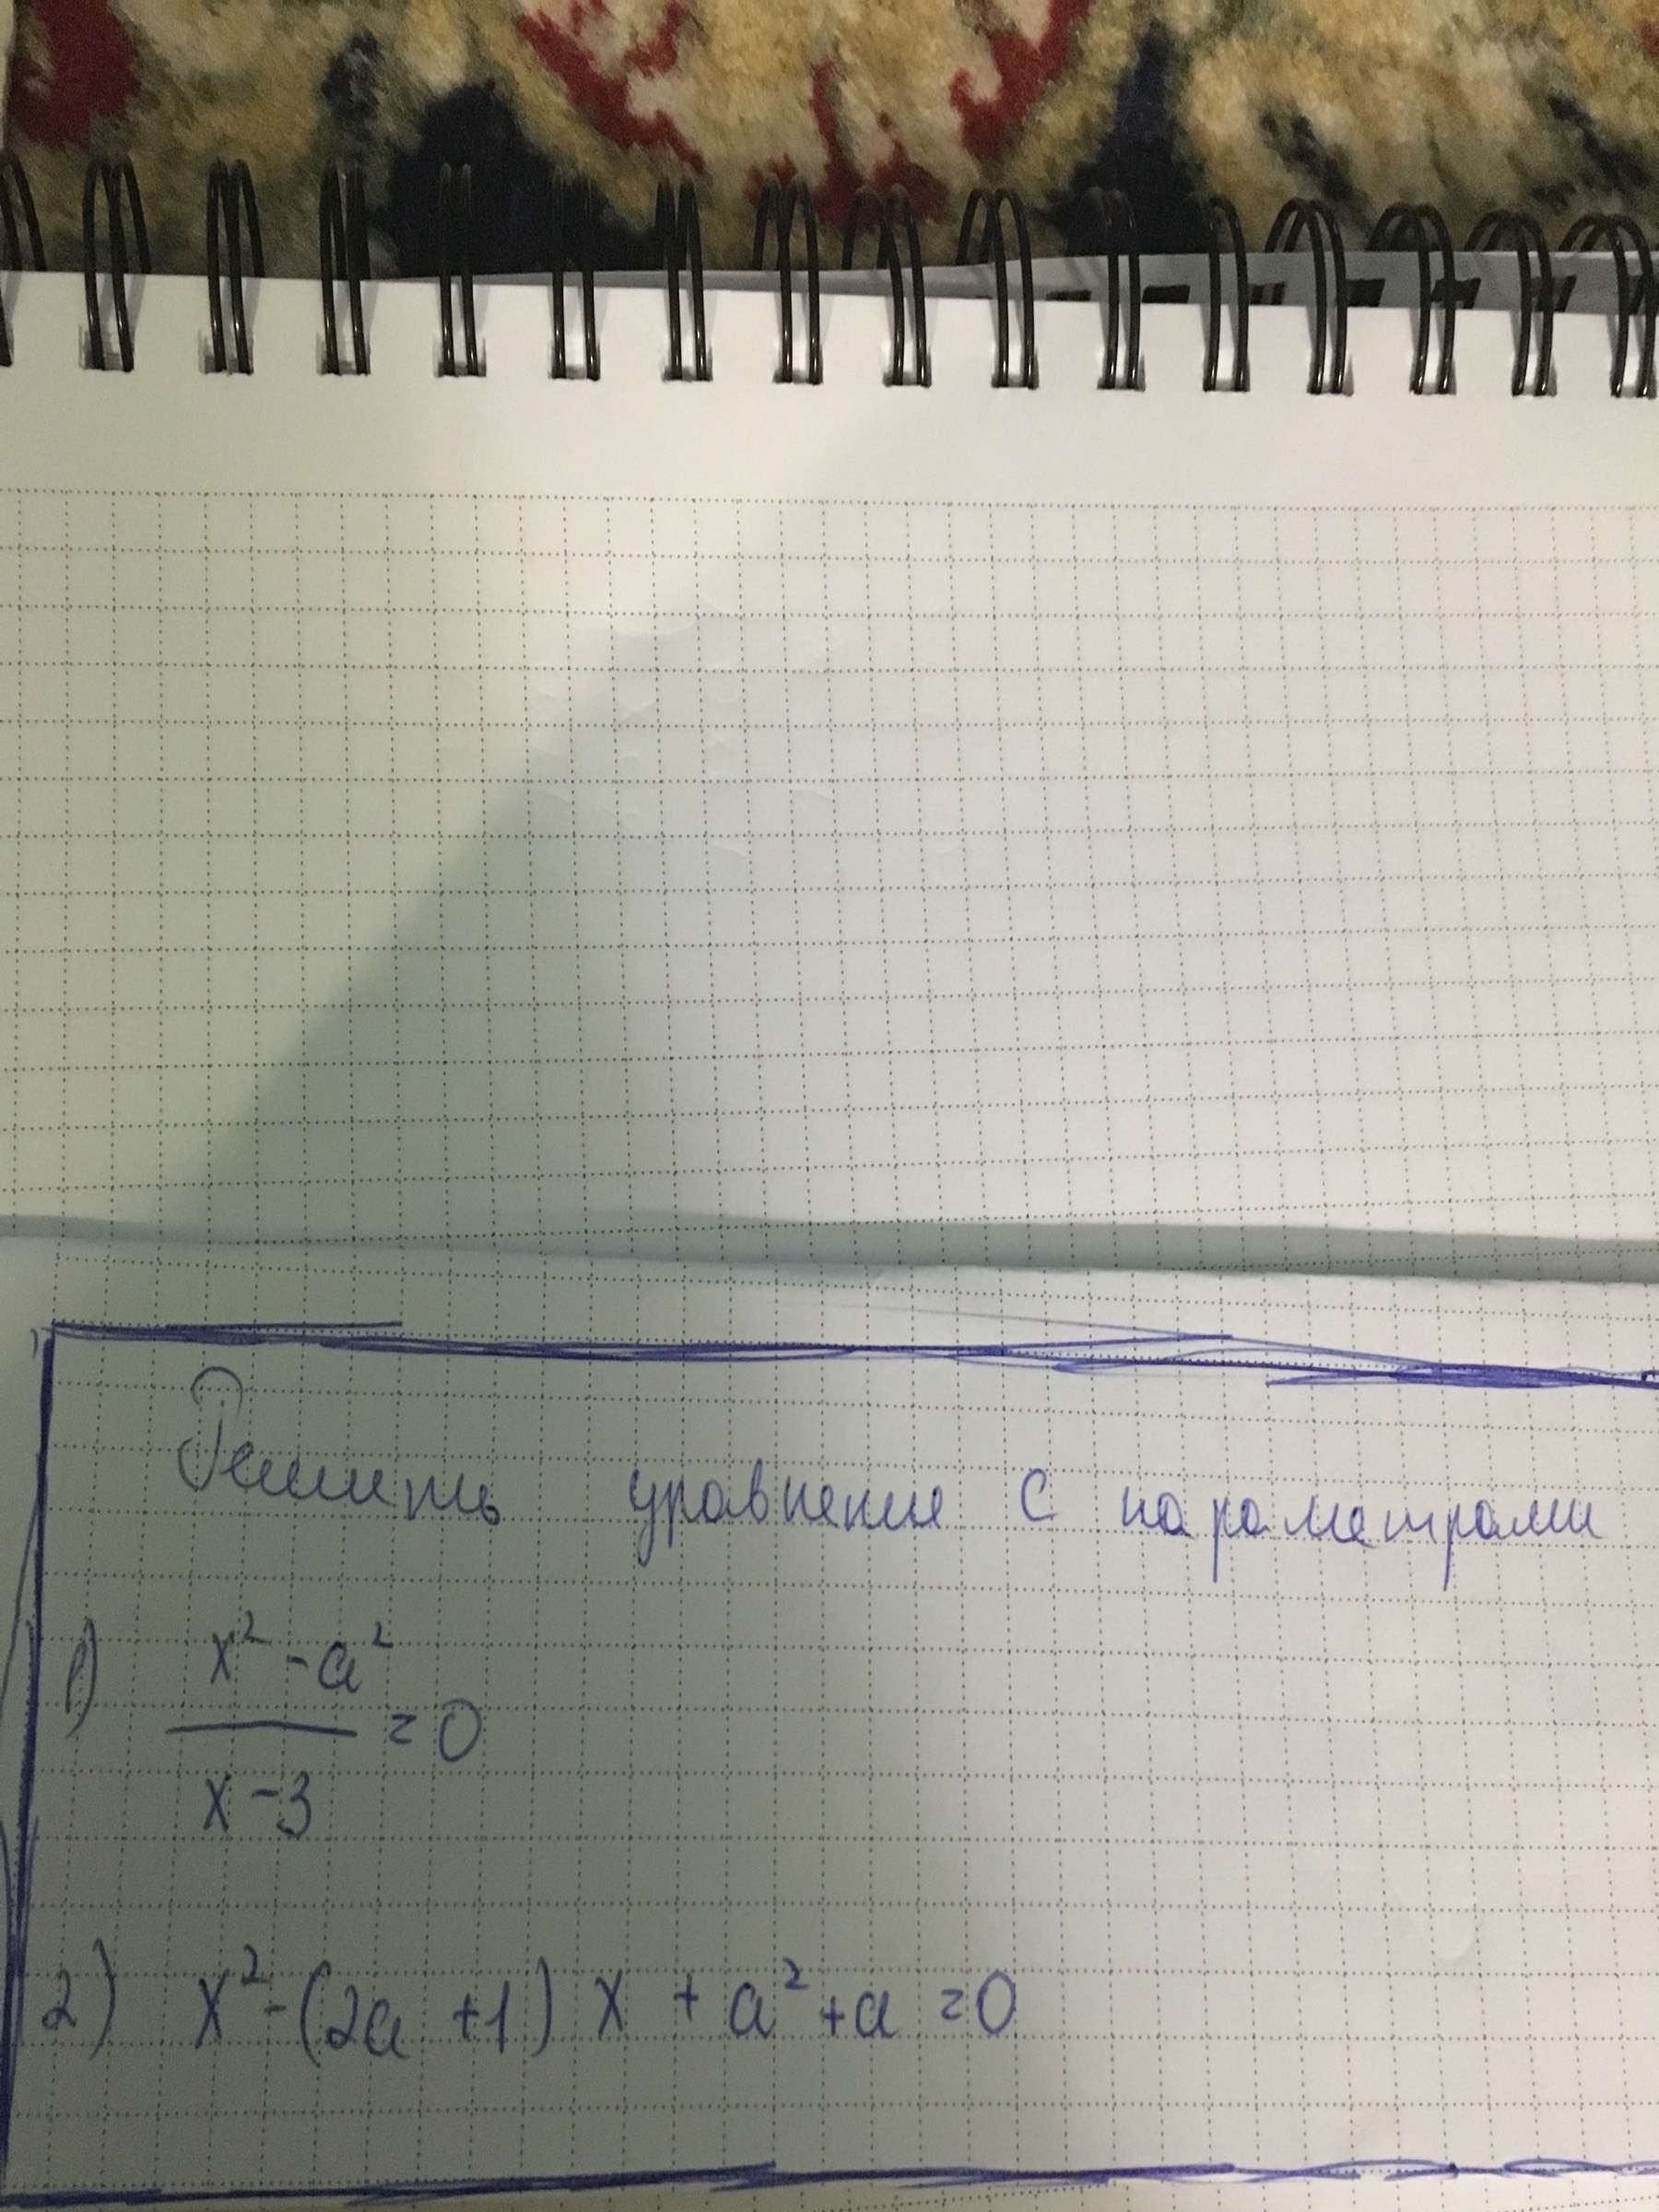 Решить уравнение с параметрами
1) x² - a²
= 0
x - 3
2) x² - (2a + 1) x + a² + a = 0